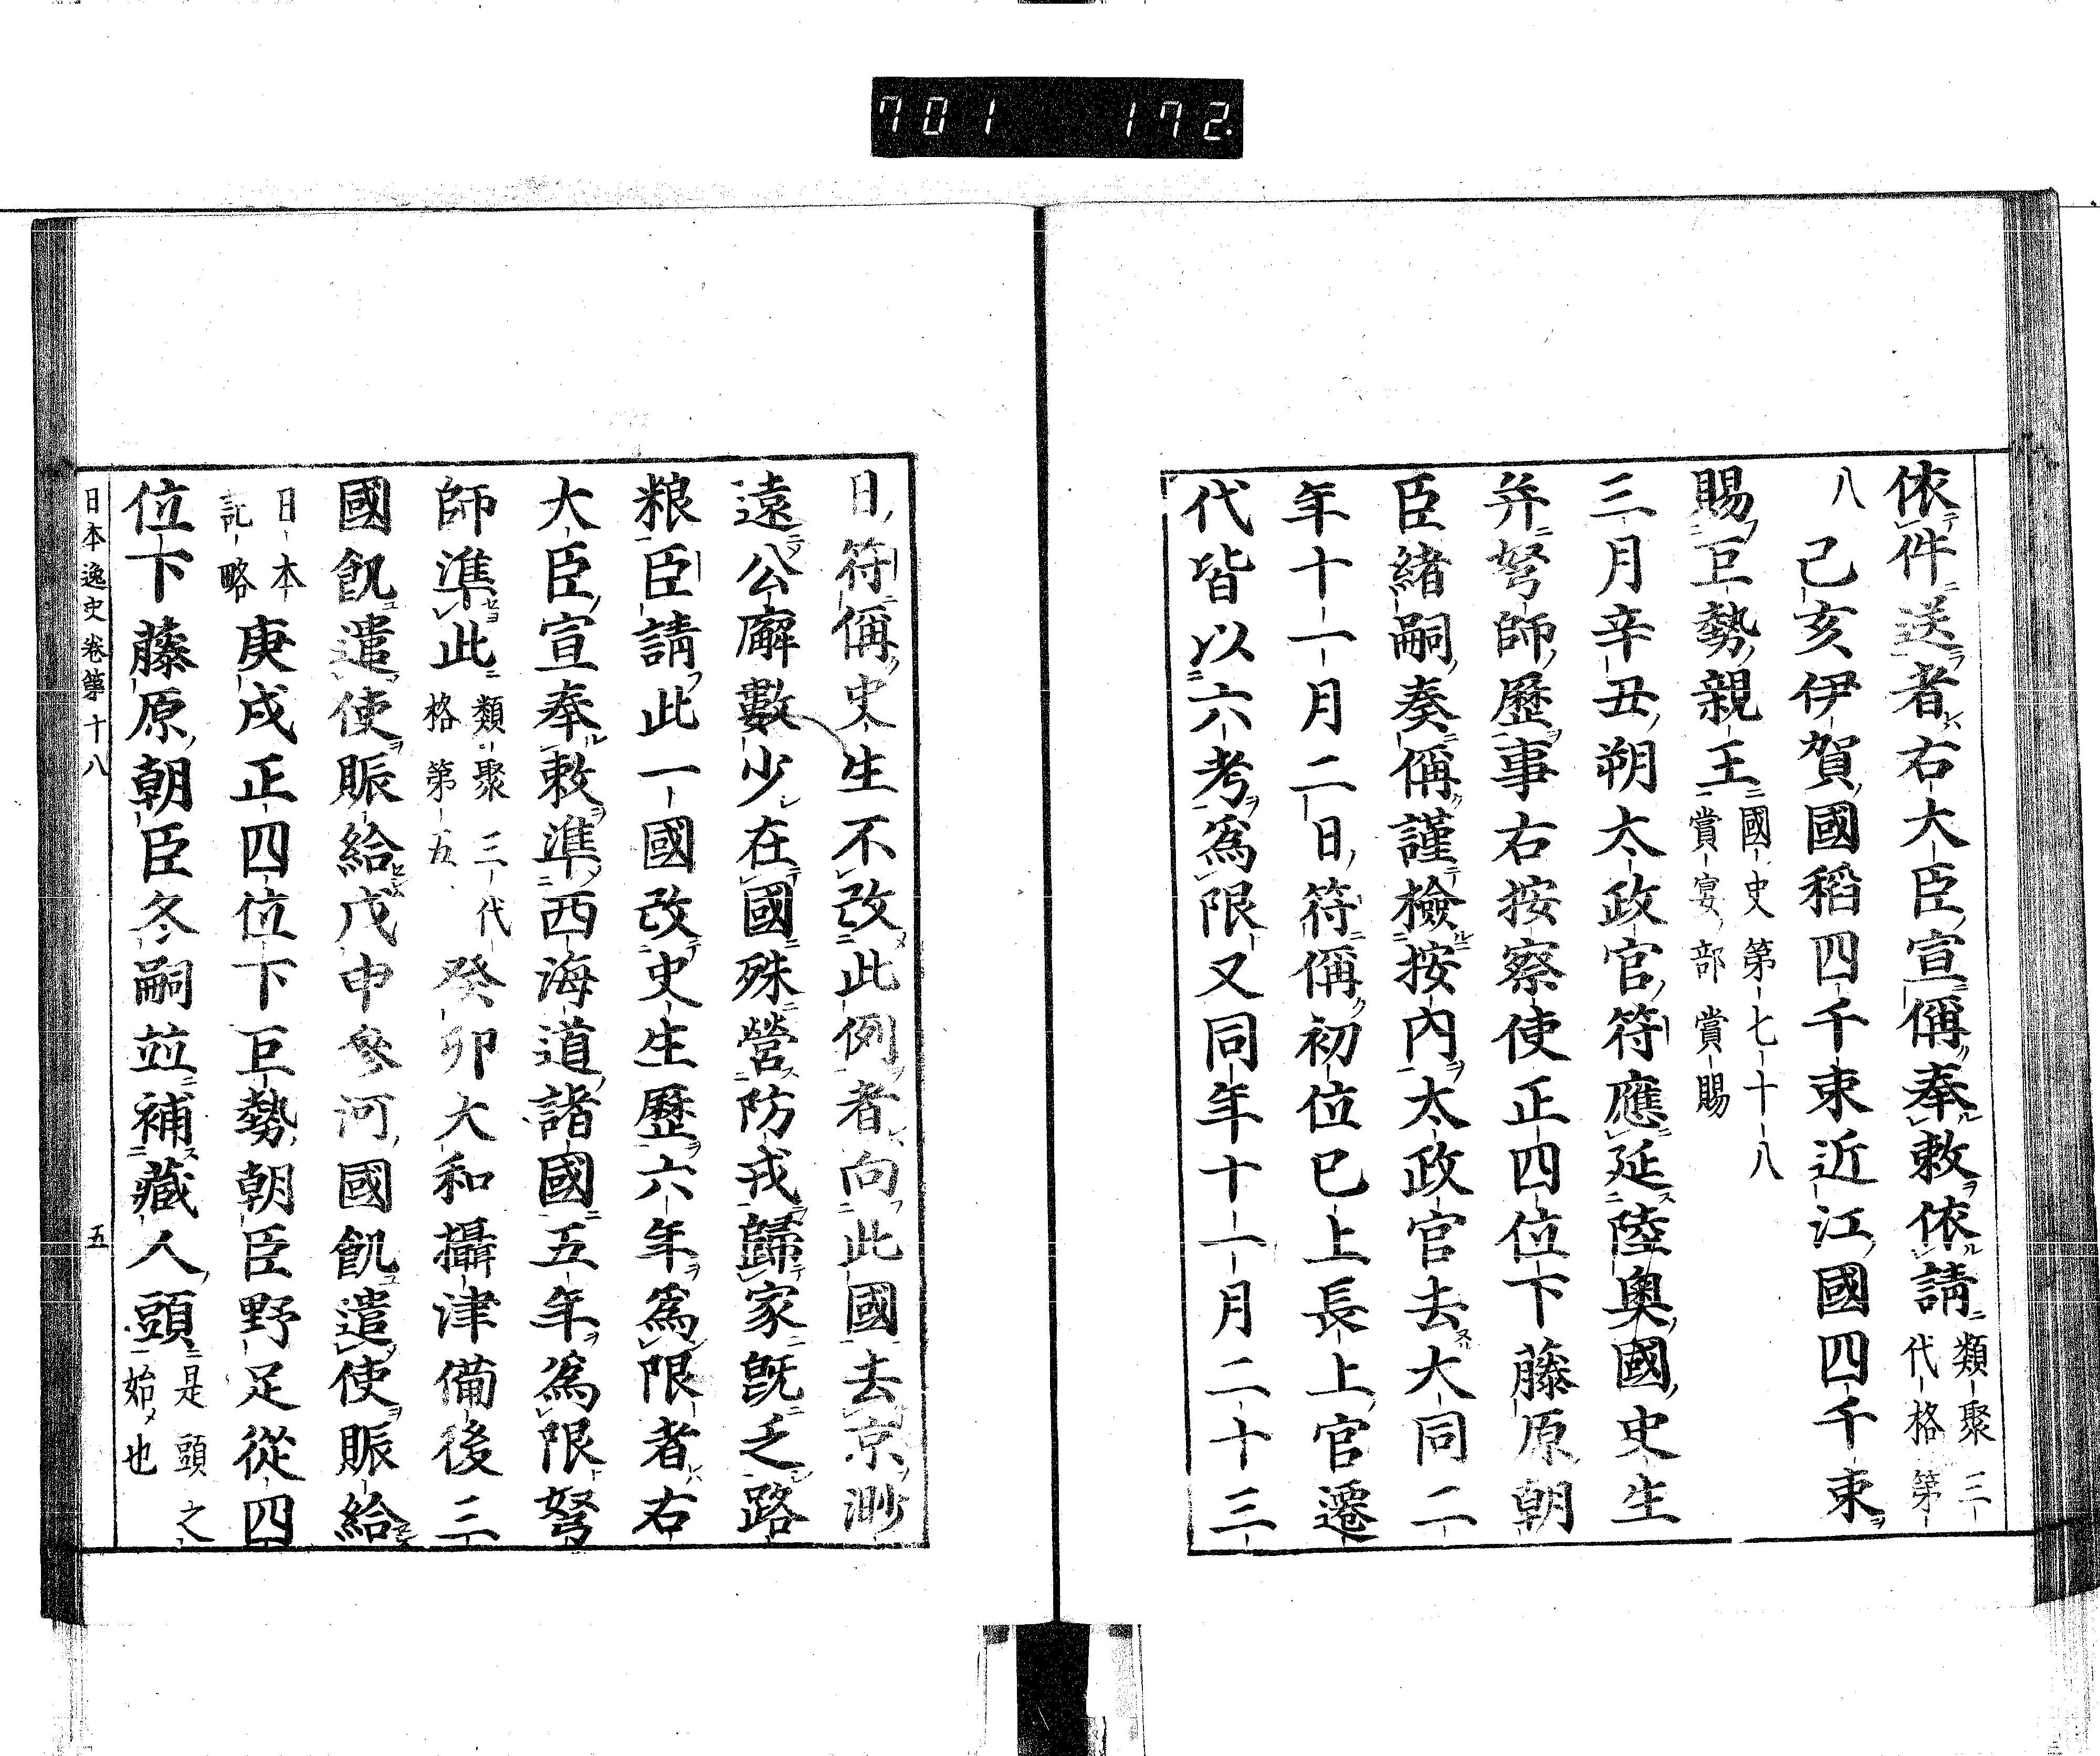 701 172.
依件送者右大臣宣偁奉敕依請類聚三代格第
八 己亥伊賀國稻四千束近江國四千束
賜巨勢親王國史第七十八賞宴部賞賜
三月辛丑朔太政官符應延陸奧國史生
并弩師歷事右按察使正四位下藤原朝
臣緒嗣奏偁謹檢按內太政官去大同二
年十一月二日符偁初位已上長上官遷
代皆以六考爲限又同年十一月二十三
日符偁史生不改此例者向此國去京渺
遠公廨數少在國殊營防戎歸家旣乏路
粮臣請此一國改史生歷六年爲限者右
大臣宣奉敕準西海道諸國五年爲限弩
師準此類聚三代格第五 癸卯大和攝津備後三
國飢遣使賑給戊申參河國飢遣使賑給
日本記略 庚戌正四位下巨勢朝臣野足從四
位下藤原朝臣冬嗣並補藏人頭是頭之始也
日本逸史卷第十八 五